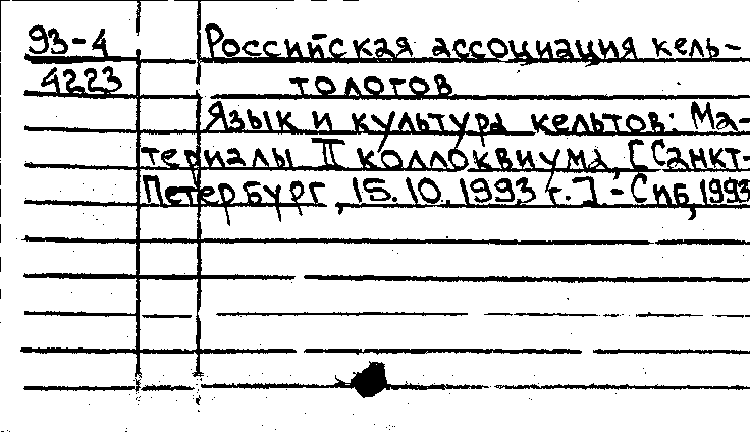 93-4 Российская ассоциация кель-
4223 тологов
Язык и культура кельтов: Ма-
териалы II коллоквиума, [Санкт-
Петербург, 15.10.1993 г.] - Спб, 1993